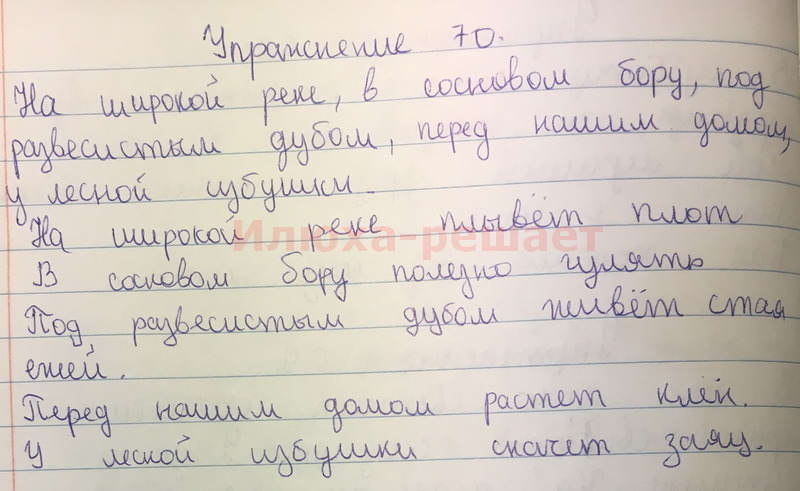 Упражнение 70.
На широкой реке, в сосновом бору, под
развесистым дубом, перед нашим домом,
у лесной избушки.
На широкой реке плывёт плот
Илюха-решает
В сосновом бору полезно гулять
Под развесистым дубом живёт стая
ежей.
Перед нашим домом растет клён.
У лесной избушки скачет заяц.